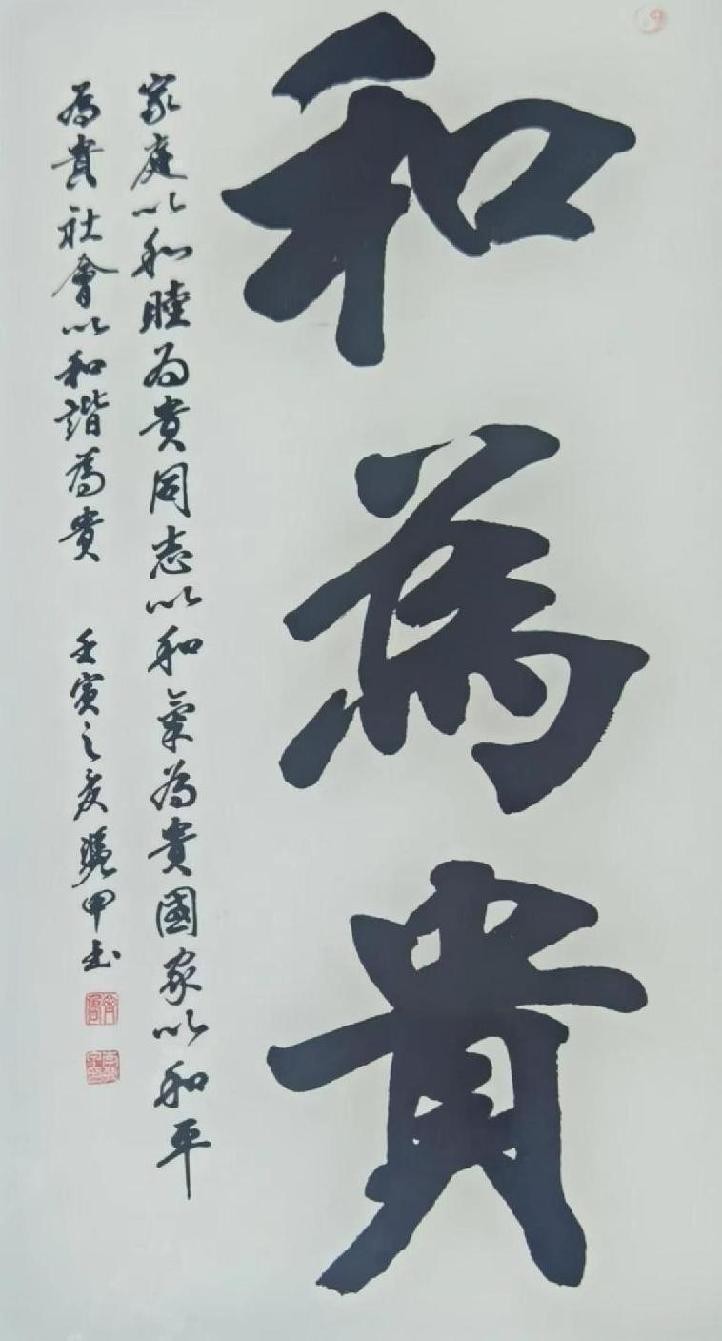 和為貴
家庭以和睦为貴同志以和氣為貴國家以和平
為貴社會以和諧為貴 壬寅之夏 甲书